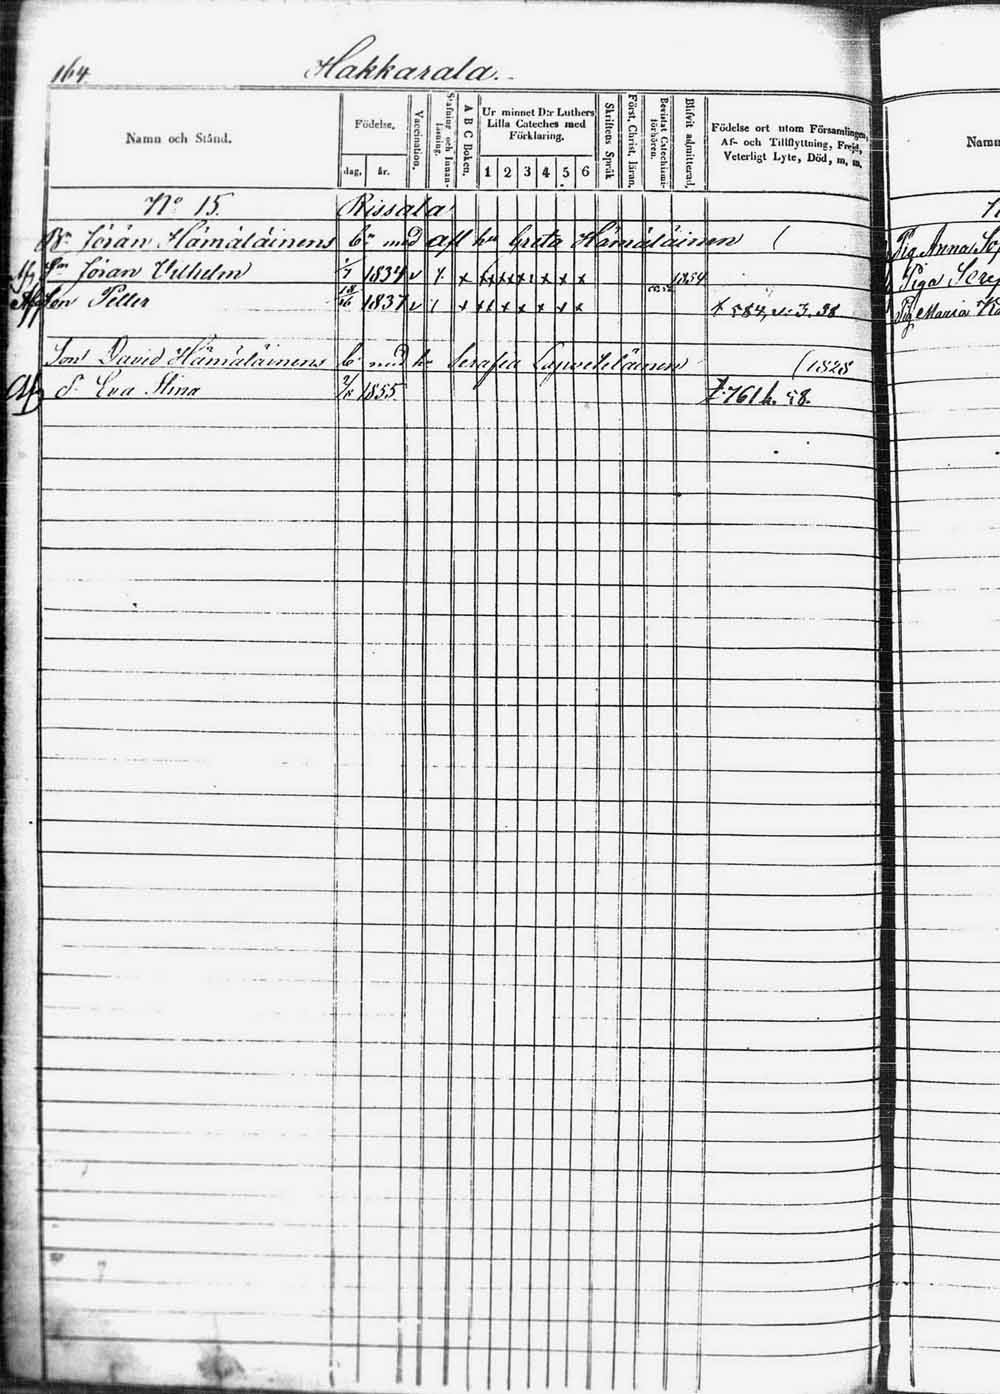 164. Hakkarala.
Namn och Stånd.
Födelse.
dag, år.
Vaccination.
Stafning och Innanläsning.
A B C Boken.
Ur minnet D:r Luthers Lilla Cateches med Förklaring.
1 2 3 4 5 6
Skriftens Språk
Först. Christ. läran.
Bevistat Catechismiförhören.
Blifvit admitterad,
Födelse ort utom Församlingen,
Af- och Tillflyttning, Frejd,
Veterligt Lyte, Död, m. m.
Namn
No 15. Rissala
Jöran Hämäläinens bn med afl hu Greta Hämäläinen (
Sn Jöran Vilhelm 1/7 1834 v / x x x x x x x x 1854
Son Petter 1837 v / x x x x x x x x 584, 38
Son David Hämäläinens bn med hu Serafia Lapveteläinen (1828
d. Eva Stina 1855. 761 58.
Pig Anna Sof
Piga Seref
Pig Maria